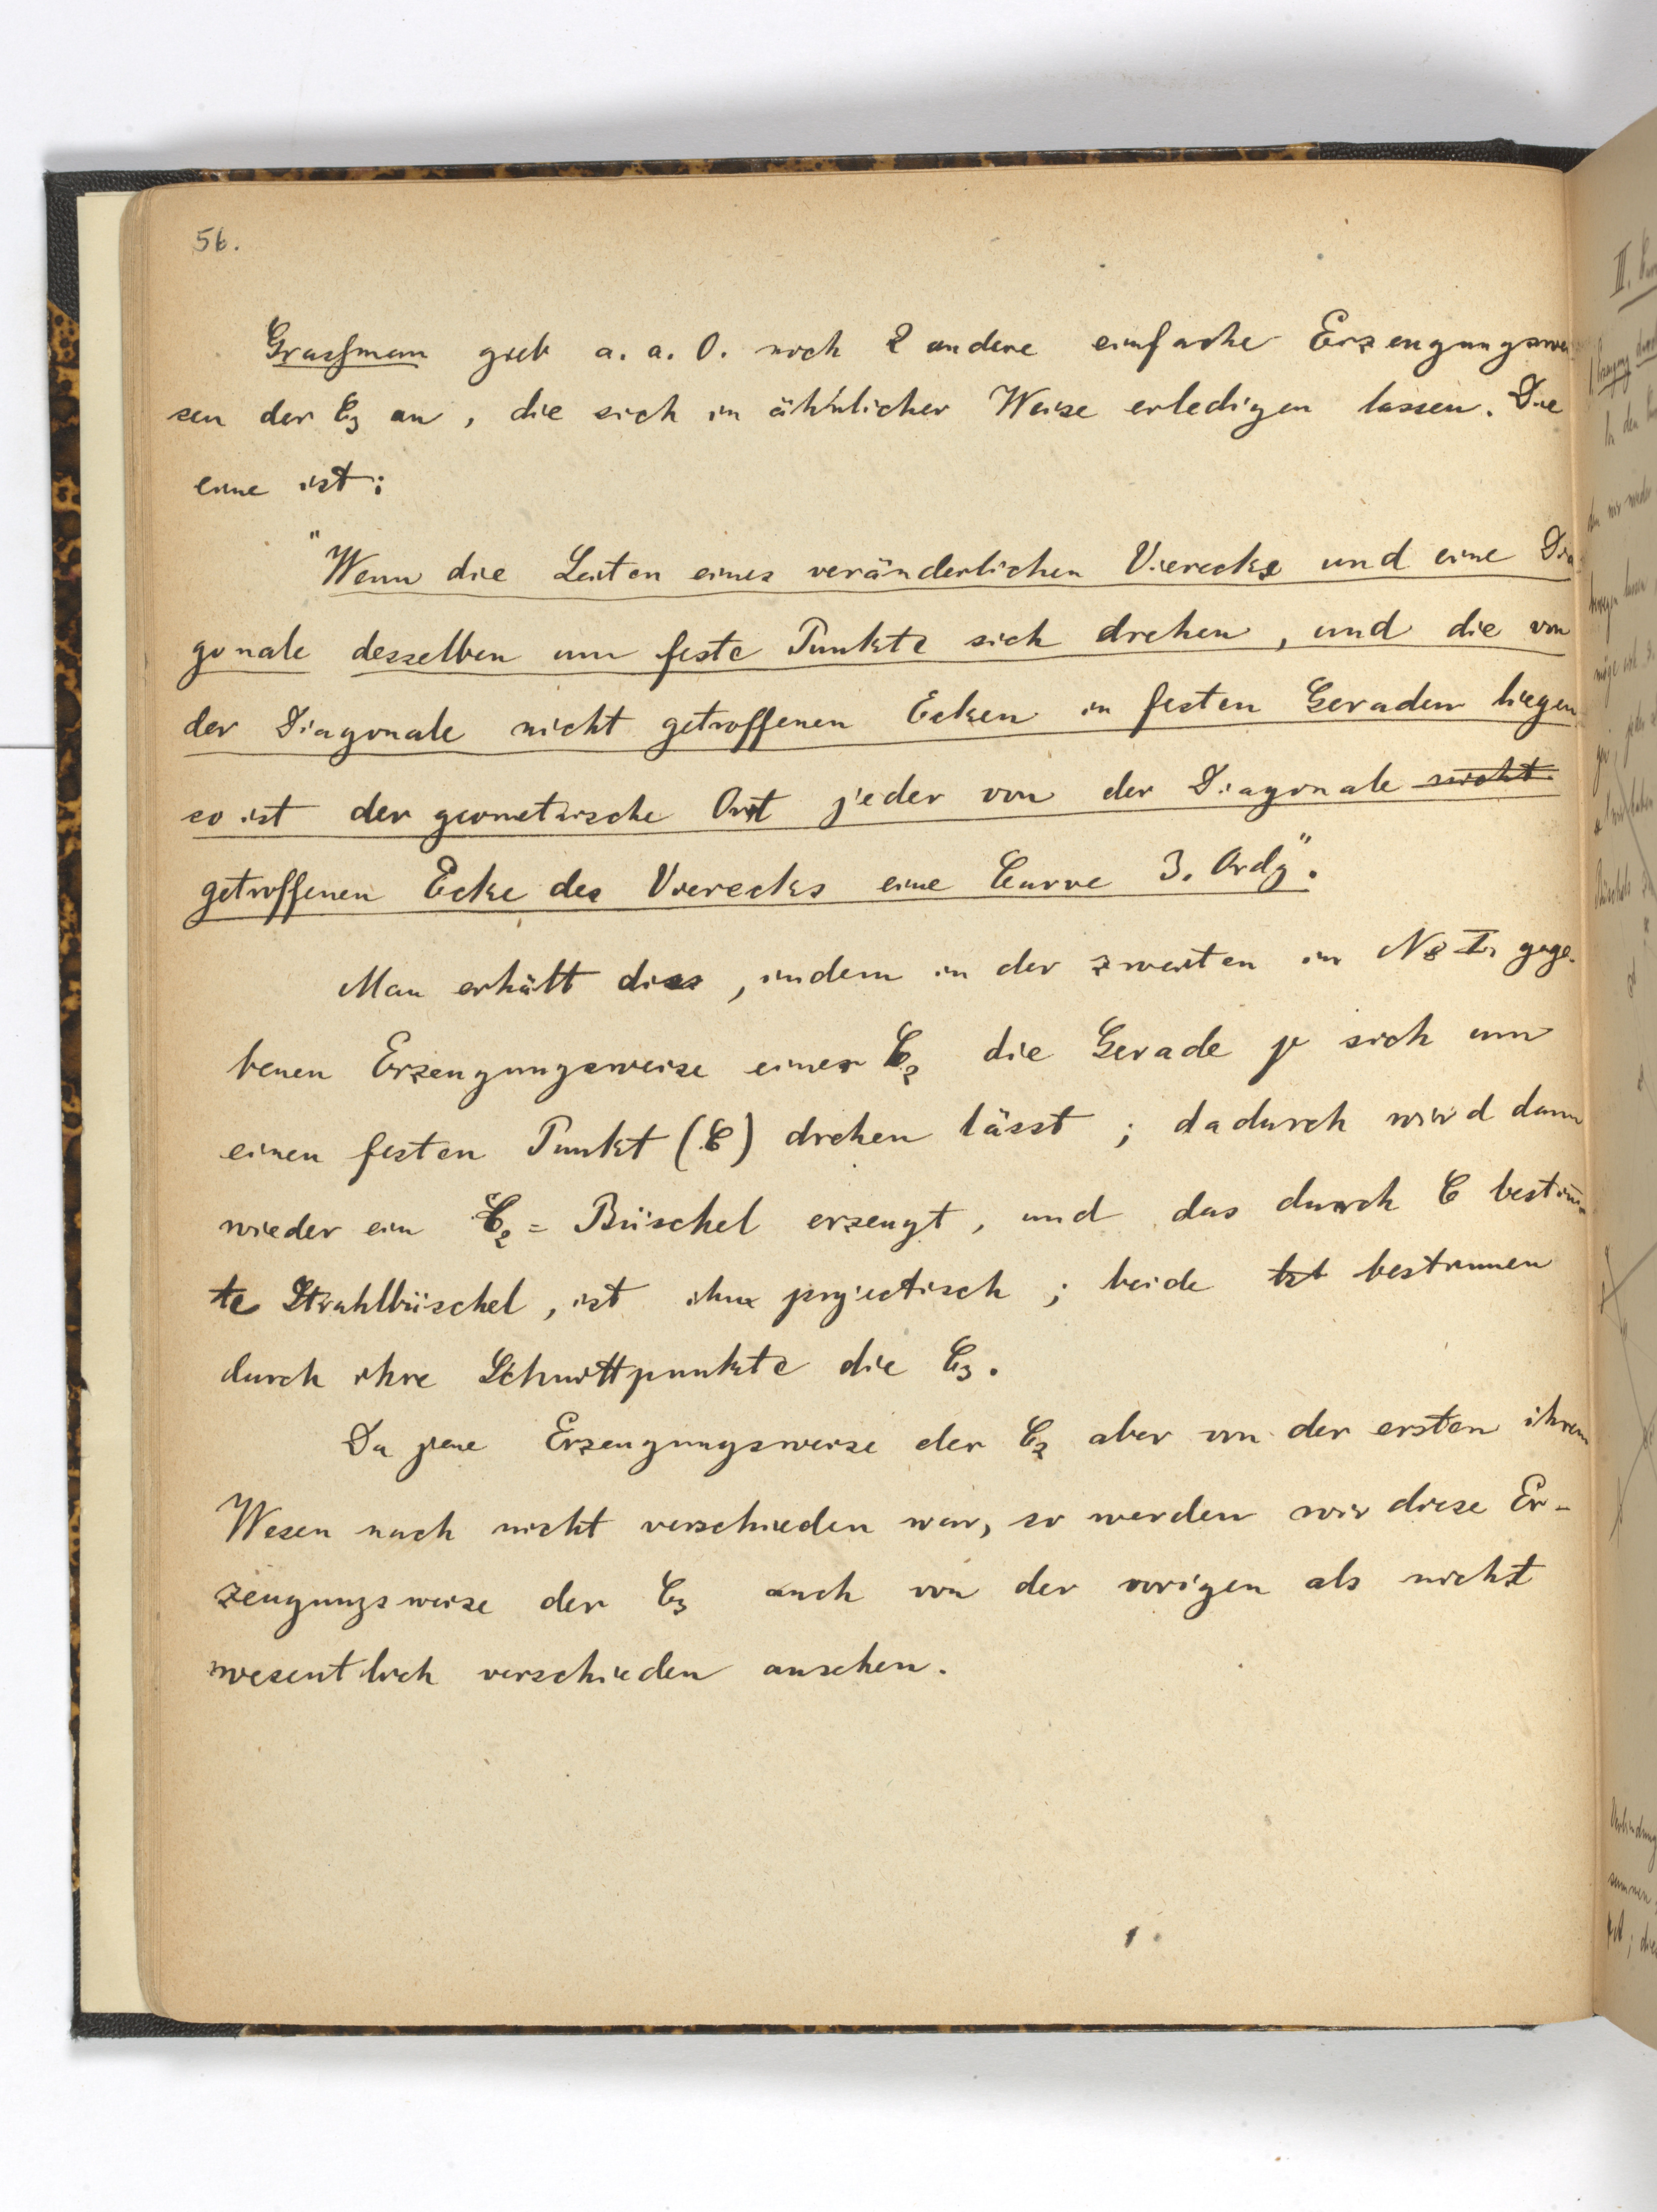 56.
Grassman gieb a. a. O. noch 2 andere einfache Erzeugungswei
sen der C₃ an, die sich in ähnlicher Weise erledigen lassen. Die
eine ist:
"Wenn die Seiten eines veränderlichen Vierecks und eine Dia
gonale desselben um feste Punkte sich drehen, und die von
der Diagonale nicht getroffenen Ecken in festen Geraden liegen
so ist der geometrische Ort jeder von der Diagonale nicht
getroffenen Ecke des Vierecks eine Curve 3. Ordg".
Man erhält dies, indem in der zweiten in № I. gege-
benen Erzeugungsweise einer C₂ die Gerade p sich um
einen festen Punkt (C) drehen lässt; dadurch wird dann
wieder ein C₂ = Büschel erzeugt, und das durch C bestim̄
te Strahlbüschel, ist ihm projectisch; beide bestimmen
durch ihre Schnittpunkte die C₃.
Da jene Erzeugungsweise der C₂ aber von der ersten ihrem
Wesen nach nicht verschieden war, so werden wir diese Er-
zeugungsweise der C₃ auch von der vorigen als nicht
wesentlich verschieden ansehen.